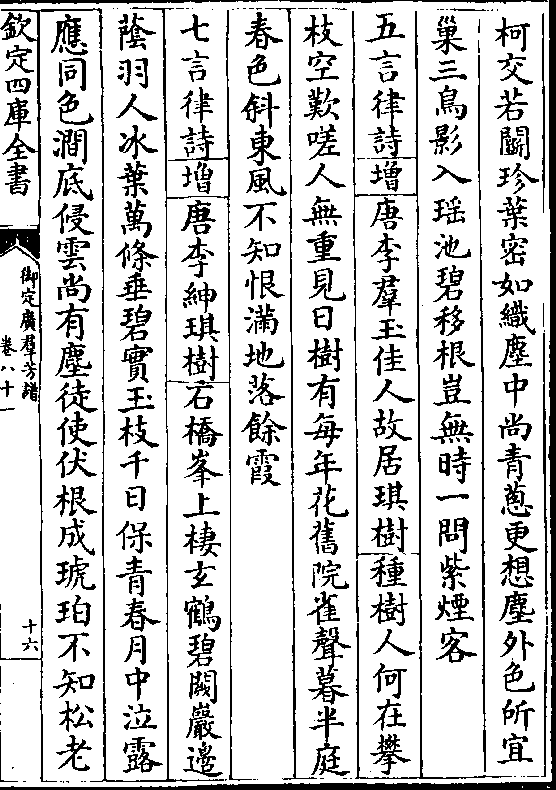 柯交若鬭珍葉密如織塵中尚青蔥更想塵外色所宜
巢三鳥影入瑶池碧移根豈無時一問紫煙客
五言律詩增唐李羣玉佳人故居琪樹種樹人何在攀
枝空歎嗟人無重見日樹有每年花舊院雀聲暮半庭
春色斜東風不知恨滿地落餘霞
七言律詩增唐李紳琪樹石橋峯上棲玄鶴碧闕巖邊
蔭羽人冰葉萬條垂碧實玉枝千日保青春月中泣露
應同色澗底侵雲尚有塵徒使伏根成琥珀不知松老
欽定四庫全書
御定廣羣芳譜
卷八十一
十六